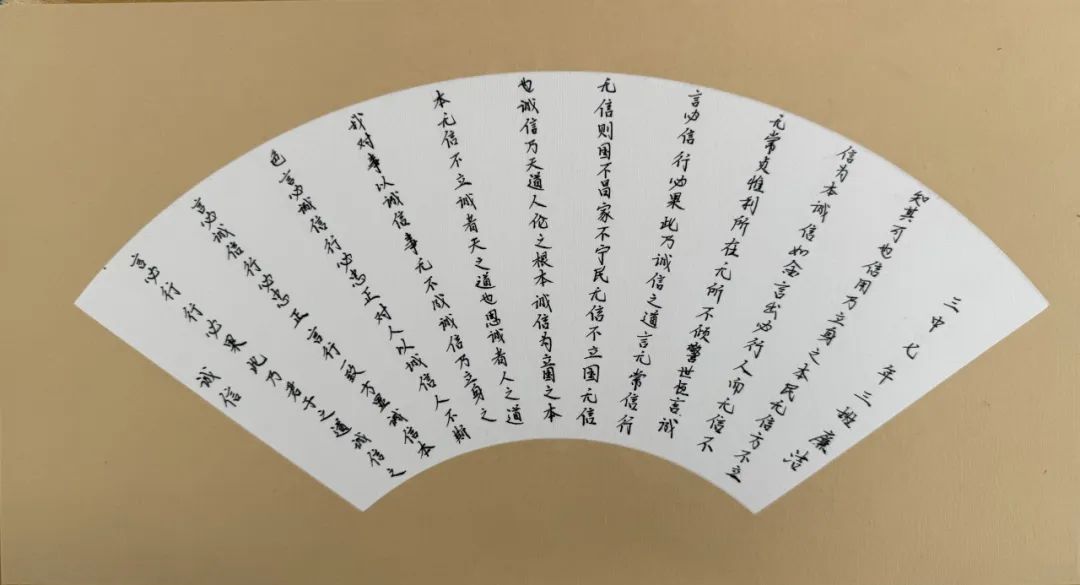 诚信
言必行 行必果 此乃君子之道诚信之
言必诚信行必忠正 言行致方显诚信本
色言必诚信行必忠正对人以诚信人不欺
我对事以诚信事无不成诚信乃立身之
本无信不立诚者天之道也思诚者人之道
也诚信乃天道人伦之根本诚信为立国之本
无信则国不昌家不宁民无信不立国无信
言必信行必果此乃诚信之道言无常信行
无常贞惟利所在无所不倾警世恒言诚
信为本诚信如金言出必行人而无信不
知其可也信用乃立身之本民无信方不立
三中七年三班廉洁